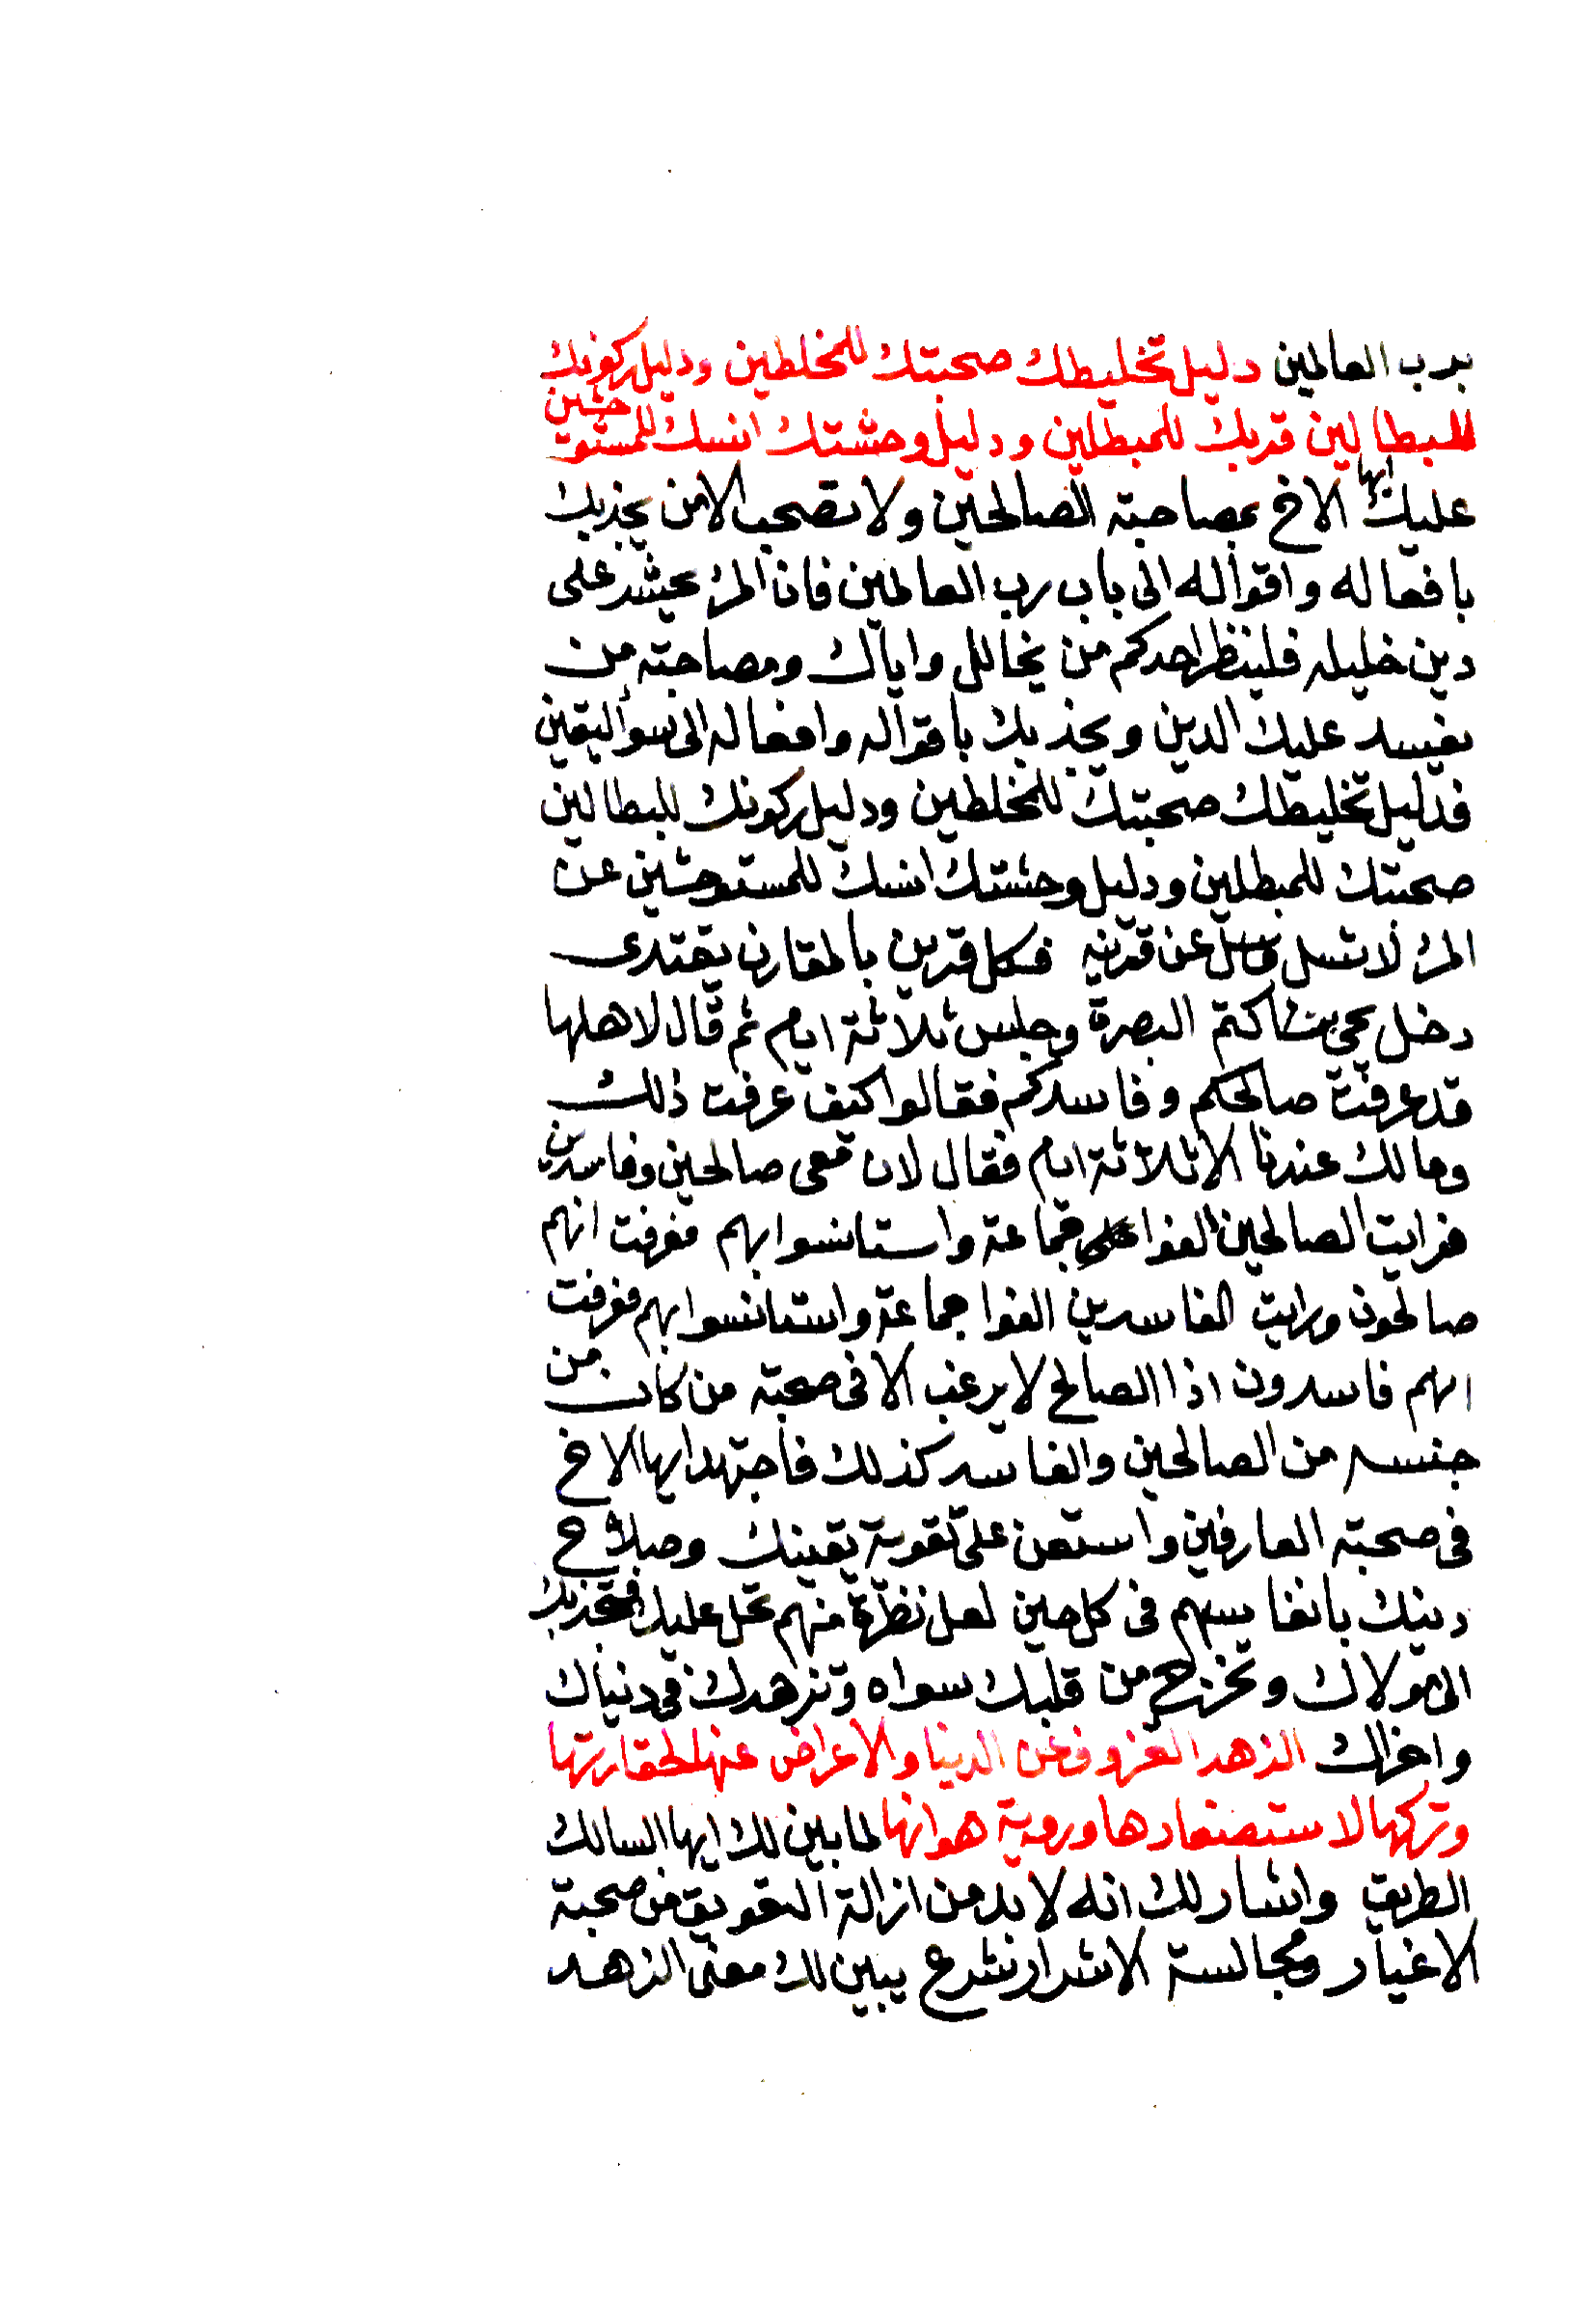 برب العالمين دليل تخليطك صحبتك للمخلطين ودليل ركونك
للبطالين قربك للمبطلين ودليل وحشتك انسك للمستوحشين
عليك ايها الاخ بمصاحبة الصالحين ولا تصحب الا من يجذبك
بافعاله واقواله الى باب رب العالمين فان المرء يحشر على
دين خليله فلينظر احدكم من يخالل واياك ومصاحبة من
يفسد عليك الدين ويجذبك باقواله وافعاله الى سوء اليقين
فدليل تخليطك صحبتك للمخلطين ودليل ركونك للبطالين
صحبتك للمبطلين ودليل وحشتك انسك للمستوحشين عن
المرء لا تسل وسل عن قرينه فكل قرين بالمقارن يقتدى
دخل يحيى بن اكتم البصرة وجلس ثلاثة ايام ثم قال لاهلها
قد عرفت صالحكم وفاسدكم فقالوا كيف عرفت ذلك
ومالك عندنا الا ثلاثة ايام فقال لان معى صالحين وفاسدين
فرايت الصالحين الفوا جماعة واستانسوا بهم فعرفت انهم
صالحون ورايت الفاسدين الفوا جماعة واستانسوا بهم فعرفت
انهم فاسدون اذا الصالح لا يرغب الا فى صحبة من كان من
جنسه من الصالحين والفاسد كذلك فاجتهد ايها الاخ
فى صحبة العارفين واستعن على تقوية يقينك وصلاح
دينك بانفاسهم فى كل حين لعل نظرة منهم تحل عليك فتجذبك
الى مولاك وتخرج من قلبك سواه وتزهدك فى دنياك
واخراك الزهد العزوف عن الدنيا والاعراض عنها لحقارتها
وتركها لاستصغارها وروية هوانها لما بين لك ايها السالك
الطريق واشار لك انه لا بد من ازالة التعويق من صحبة
الاغيار ومجالسة الاشرار شرع يبين لك معنى الزهد